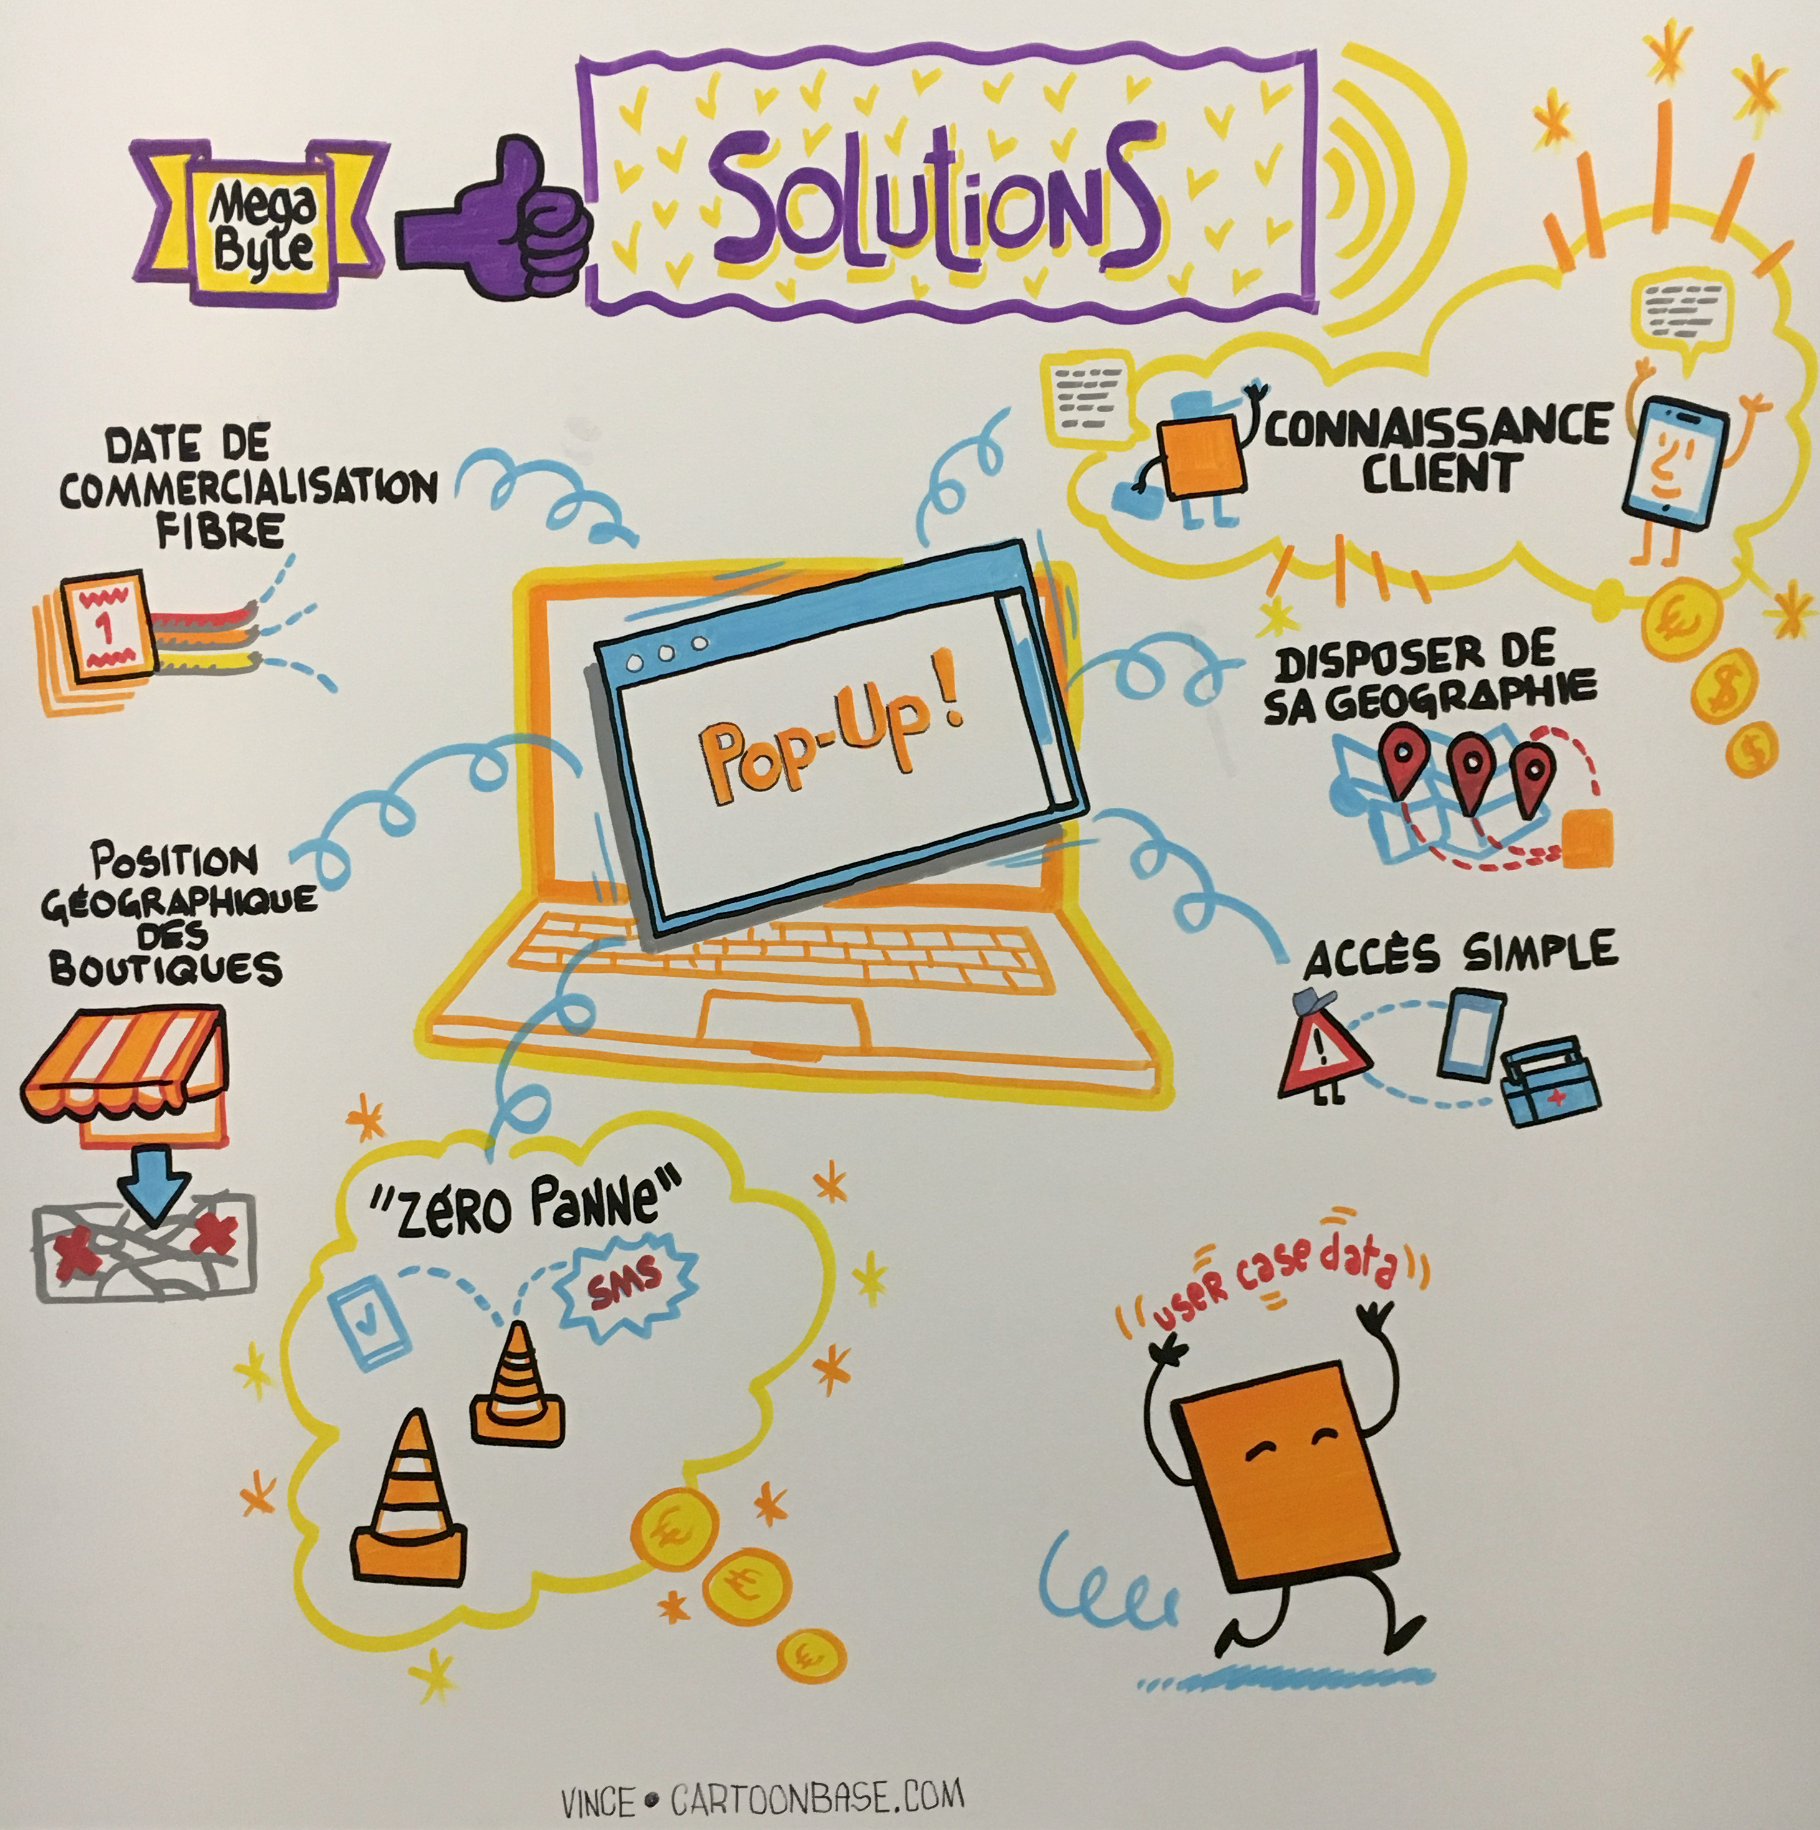 Mega
Byte
SOLUTIONS
DATE DE
COMMERCIALISATION
FIBRE
1
CONNAISSANCE
CLIENT
€
$
$
Pop-Up!
DISPOSER DE
SA GEOGRAPHIE
POSITION
GÉOGRAPHIQUE
DES
BOUTIQUES
ACCÈS SIMPLE
!
"ZÉRO PANNE"
SMS
€
€
€
user case data
VINCE • CARTOONBASE.COM